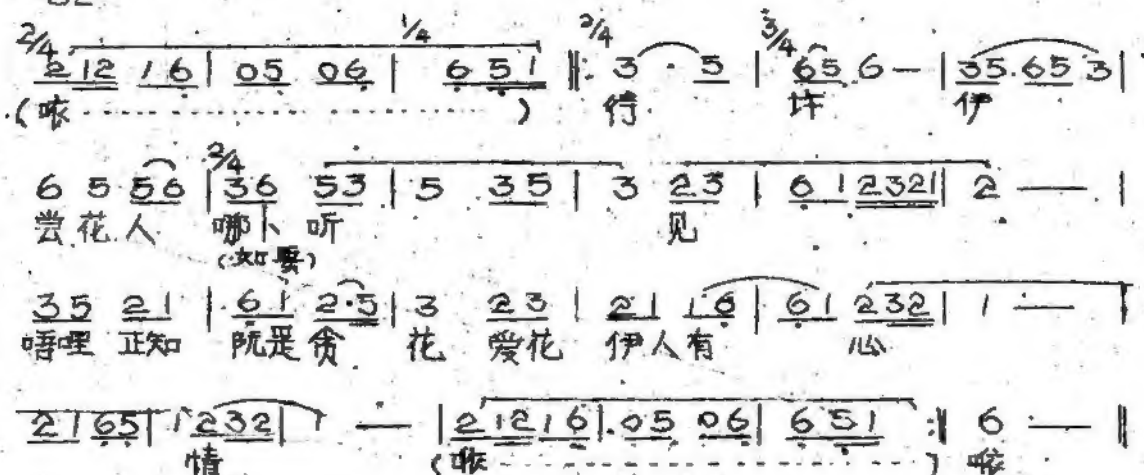 2/4 2 12 1 6 | 05 06 | 1/4 6 51 ‖: 2/4 3 · 5 | 3/4 65 6 — | 35·65 3 |
(咳 - - - - - - ) 待 许 伊
6 5 56 | 2/4 36 53 | 5 35 | 3 23 | 6 1 2321 | 2 — |
尝花人 哪卜听 见
(如要)
35 21 | 61 2·5 | 3 23 | 21 16 | 61 232 | 1 — |
唔哩 正知 阮是贪 花 爱花 伊人有 心
21 65 | 1 232 | 1 — | 2 12 16 | 05 06 | 6 51 :‖ 6 — ‖
情 (咳 - - - - - - ) 咳